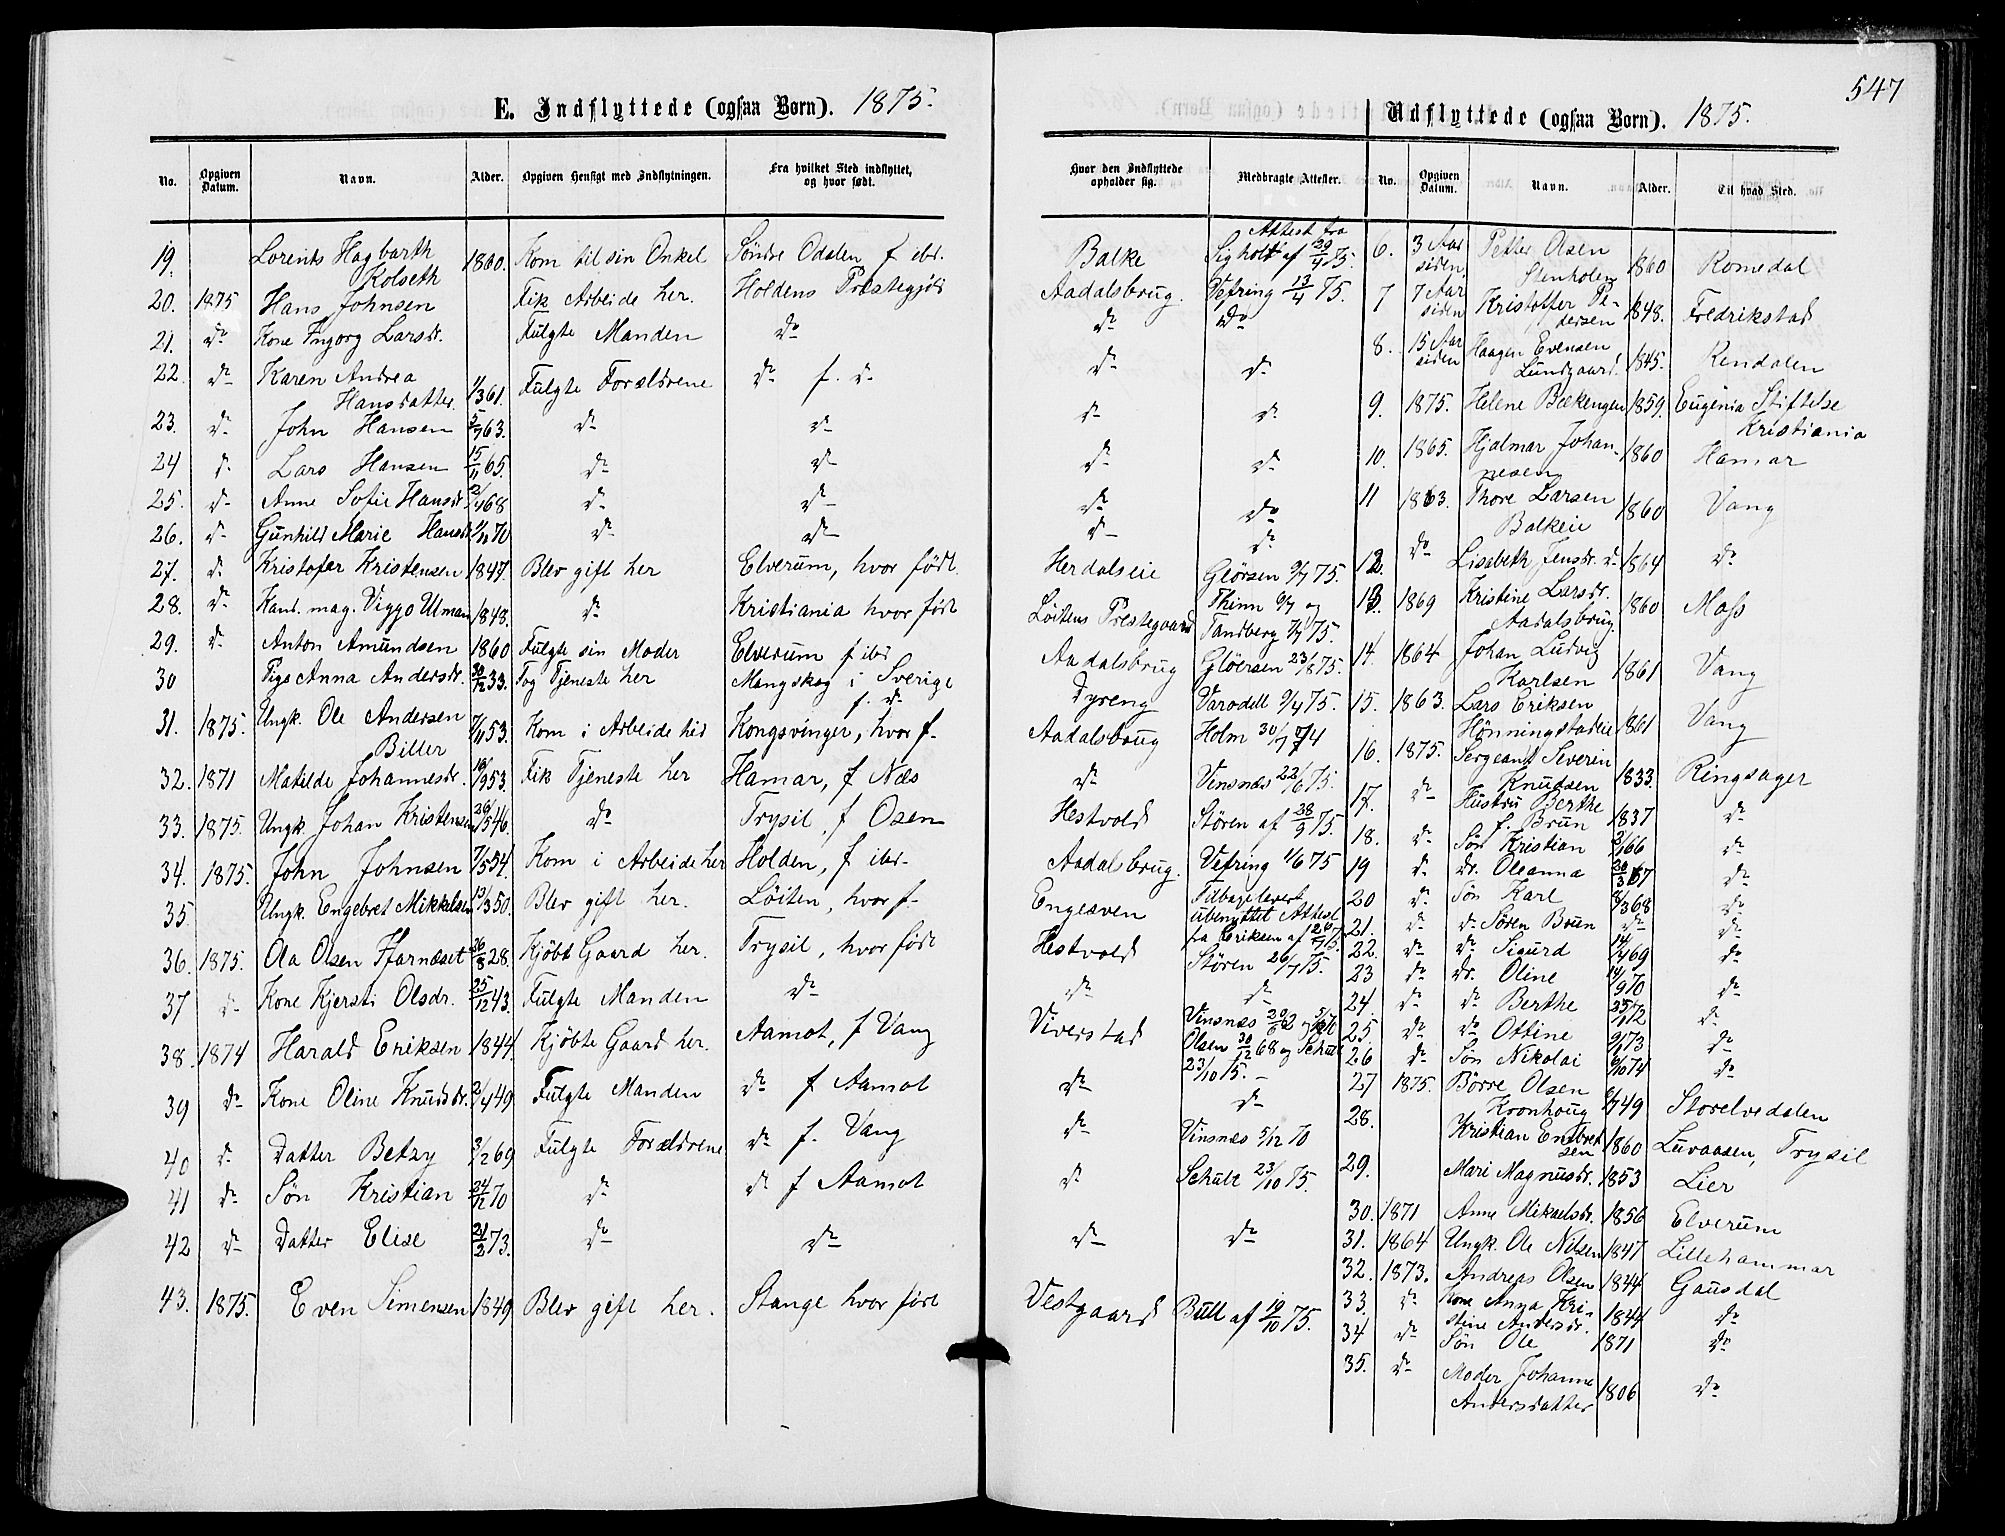 547
E. Indflyttede (ogsaa Børn). 1875.
No. Opgiven Datum. Navn. Alder. Opgiven Hensigt med Indflytningen. Fra hvilket Sted indflyttet, og hvor født.
19. Lorents Hagbarth Kolseth 1860. Kom til sin Onkel Søndre Odalen f ibd.
20. 1875 Hans Johnsen Fik Arbeide her. Holdens Præstegjæld
21. do Kone Ingborg Larsdr. Fulgte Manden do
22. do Karen Andrea Hansdatter. 1/3 61. Fulgte Forældrene do f. do
23. do John Hansen 5/7 63. do do
24 do Lars Hansen 15/11 65. do do
25. do Anne Sofie Hansdr. 2/4 68 do do
26. do Gunhild Marie Hansdr 1/11 70 do do
27. do Kristofer Kristensen 1847. Blev gift her Elverum, hvor født.
28. do Kand. mag. Viggo Ulman 1848. do Kristiania hvor født
29. do Anton Amundsen 1860 Fulgte sin Moder Elverum f ibd
30 Pige Anna Andersdr. 30/12 33. Tog Tjeneste her Mangskog i Sverige f. do
31. 1875. Ungk. Ole Andersen Biller 7/11 53. Kom i Arbeide hid Kongsvinger, hvor f.
32. 1871 Matilde Johannesdr. 16/9 53. Fik Tjeneste her Hamar, f Næs
33. 1875. Ungk. Johan Kristensen 26/5 46. do Trysil, f Osen
34. 1875. John Johnsen 7/5 54. Kom i Arbeide her Holden, f ibd.
35 Ungk. Engebret Mikkelsen 13/3 50. Blev gift her. Løiten, hvor f.
36. 1875. Ola Olsen Fjarnæset 26/8 28. Kjøbt Gaard her. Trysil, hvor født
37 do Kone Kjersti Olsdr. 25/12 43. Fulgte Manden do
38. 1874 Harald Eriksen 1844. Kjøbte Gaard her. Aamot, f Vang
39 do Kone Oline Knudsdr. 2/4 49 Fulgte Manden do f Aamot
40 do Datter Betzy 3/2 69 Fulgte Forældrene do f. Vang
41 do Søn Kristian 24/12 70 do do f Aamot
42 do Datter Elise 21/2 73. do do
43. 1875. Even Simensen 1849 Blev gift her. Stange hvor født
Hvor den Indflyttede opholder sig. Medbragte Attester.
Balke Attest fra Sigholt af 29/4 75.
Aadalsbrug. Vefring 13/4 75.
do do
do do
do do
do do
do do
do do
Herdalseie Glørsen 9/7 75.
Løitens Prestegaard Thinn 6/7 og Tandberg 7/7 75.
Aadalsbrug Gløersen 23/8 75.
Dyreng Varodell 9/4 75.
Aadalsbrug Holm 30/7 74
do Vinsnæs 22/6 75.
Hestvold Støren af 28/9 75.
Aadalsbrug. Vefring 1/6 75
Engesven Tilbageleveret ubenyttet Attest fra Eriksen af 26/7 75
Hestvold Støren 26/7 75.
do do
Viverstad Vinsnæs
Olsen 30/12 68 og Schult 23/10 75.
do do
do Vinsnæs 5/12 70
do Schult 23/10 75.
do do
Vestgaard Bull af 19/10 75.
Udflyttede (ogsaa Børn). 1875.
No. Opgiven Datum. Navn. Alder. Til hvad Sted.
6. 3 Aar siden. Petter Olsen Stenholen 1860 Romedal
7 7 Aar siden Kristoffer Pedersen 1848. Fredrikstad
8. 15 Aar siden Haagen Evensen Lundgaard. 1845. Rendalen
9. 1875. Helene Bækengen 1859. Eugenia Stiftelse Kristiania
10. 1865. Hjalmar Johannesen 1860 Hamar
11 1863. Thore Larsen Balkeie 1860 Vang
12. do Lisabeth Jensdr. do 1864 do
13. 1869 Kristine Larsdr. Aadalsbrug. 1860 Moss
14. 1864 Johan Ludvig Karlsen 1861 Vang
15. 1863. Lars Eriksen Hønningstadeie 1861 Vang
16. 1875. Sergeant Severin Knudsen 1833. Ringsager
17. do Hustru Berthe f. Brun 1837 do
18. do Søn Kristian 2/1 66 do
19 do dr. Oleanna 20/3 67 do
20 do Søn Karl 8/3 68 do
21. do do Søren Brun do do
22. do do Sigurd 14/4 69 do
23 do dr. Oline 14/9 70 do
24. do do Berthe 25/1 72 do
25. do do Ottine 9/1 73 do
26 do Søn Nikolai 6/10 74 do
27 1875. Børre Olsen Kronhoug 6/7 49 Storelvedalen
28. Kristian Embretsen 1860 Luvaasen, Trysil
29. Mari Magnusdr. 1853 Lier
30. 1871 Anne Mikaelsdr. 1856 Elverum
31. 1864 Ungk. Ole Nilsen 1847 Lillehammar
32. 1873. Andreas Olsen 1844 Gausdal
33. do Kone Anna Kristine Andersdr. 1844 do
34 do Søn Ole 1871 do
35. do Moder Johanne Andersdatter 1806 do